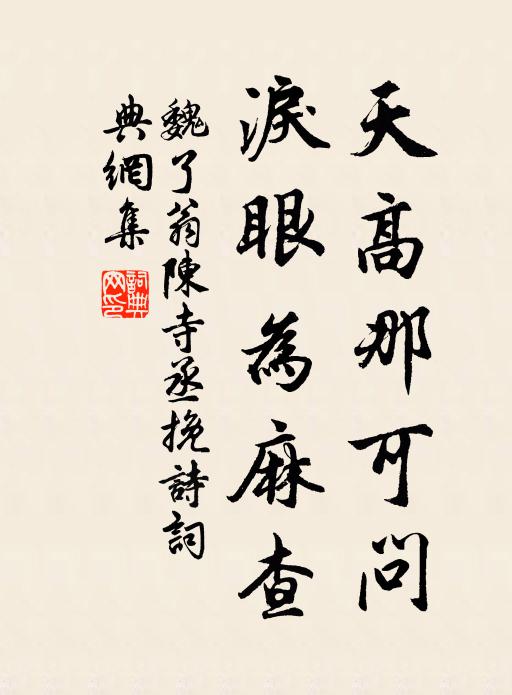 天高那可問
淚眼為麻查
魏了翁陳寺丞挽詩詞
典網集
詞典网印